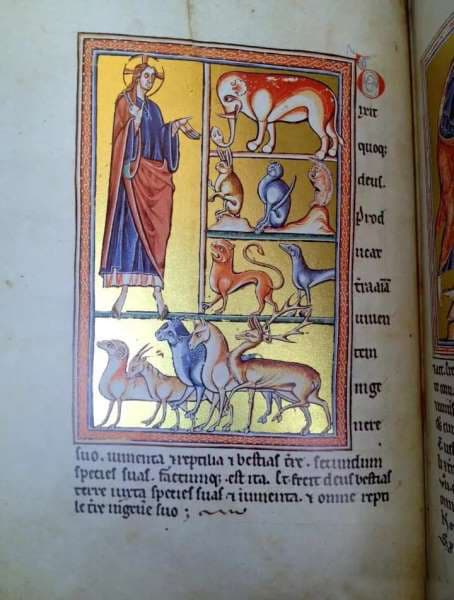 D
ixit
quoq;
deus.
Prod
ucat
t̄ra aīam
uiuen
tem
in ge
nere
suo. iumenta ⁊ reptilia ⁊ bestias t̄re. secundum
species suas. factumq; est ita. Et fecit deus bestias
terre iuxta species suas ⁊ iumenta. ⁊ omne repti
le t̄re in genere suo;